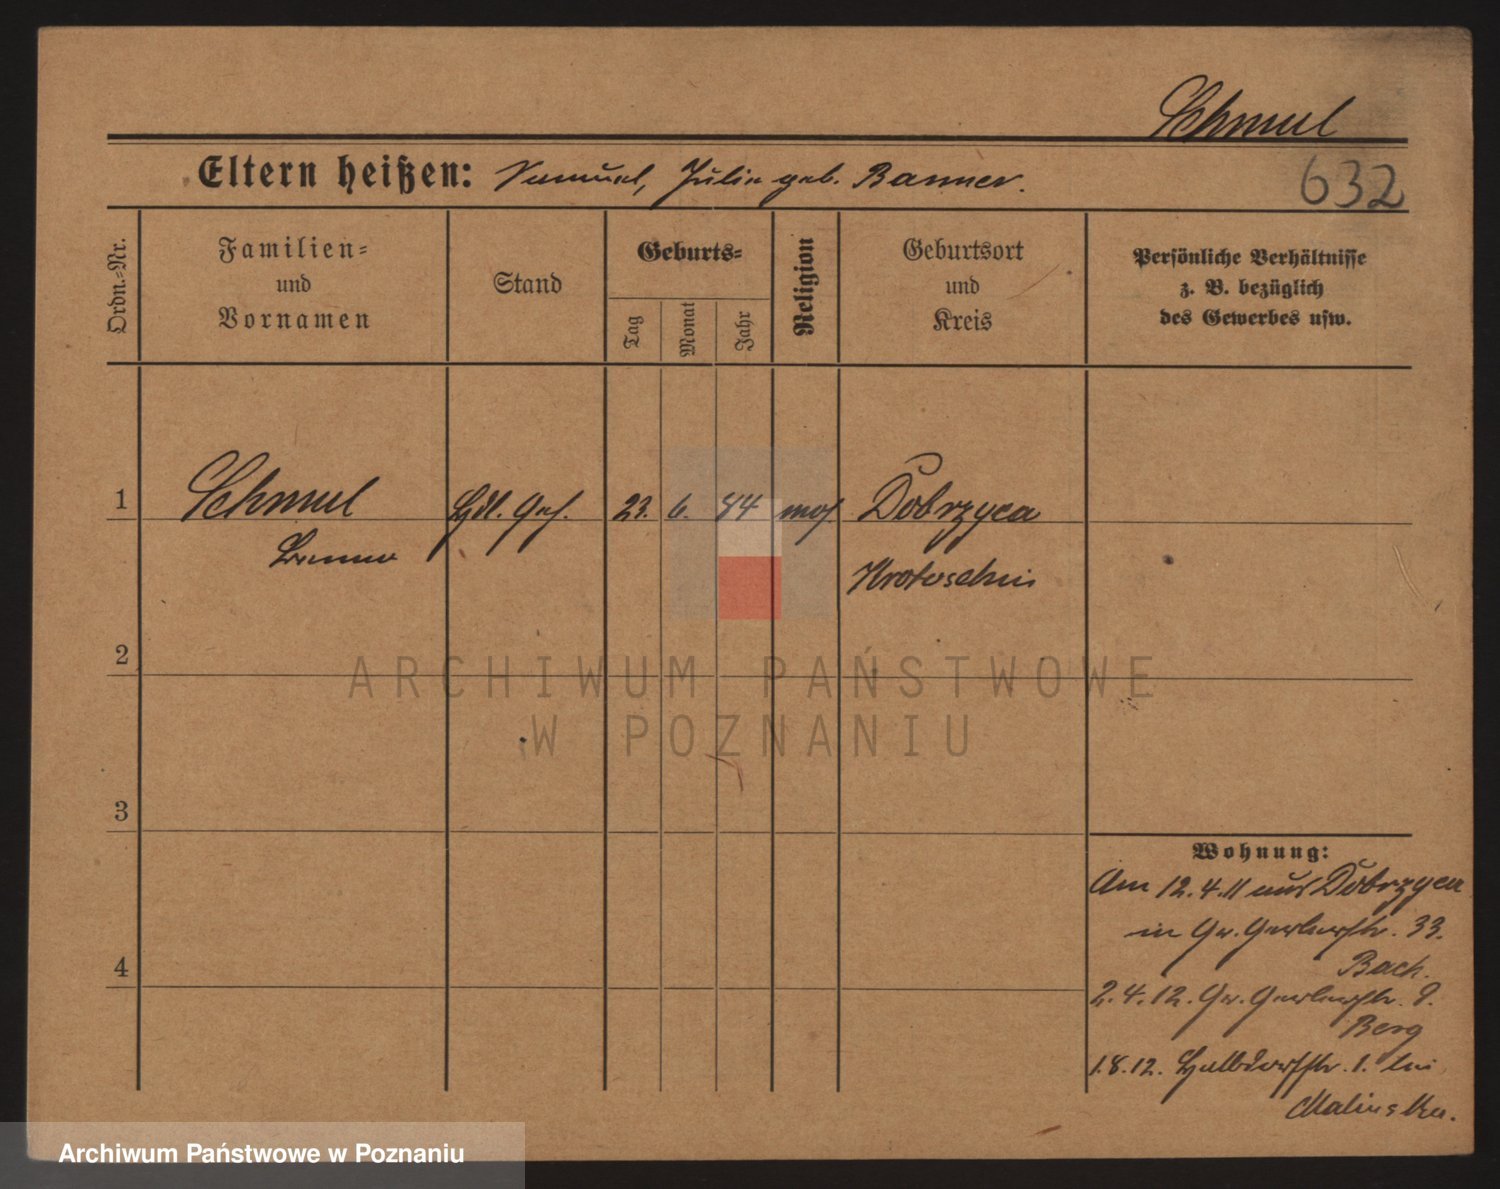 Schmul
Eltern heißen: Samuel, Julie geb. Banner.
632
Ordn.=Nr.
Familien=
und
Vornamen
Stand
Geburts=
Tag
Monat
Jahr
Religion
Geburtsort
und
Kreis
Persönliche Verhältnisse
z. B. bezüglich
des Gewerbes usw.
1
Schmul Hdl. Geh. 23. 6. 84 mos. Dobrzyca
Benno
Krotoschin
2
ARCHIWUM PAŃSTWOWE
W POZNANIU
3
Wohnung:
Am 12.4.11 aus Dobrzyca
in Gr. Gerberstr. 33.
Bach.
2.4.12. Gr. Gerberstr. 9.
Berg
4
1.8.12. Halbdorfstr. 1. bei
Malinska.
Archiwum Państwowe w Poznaniu